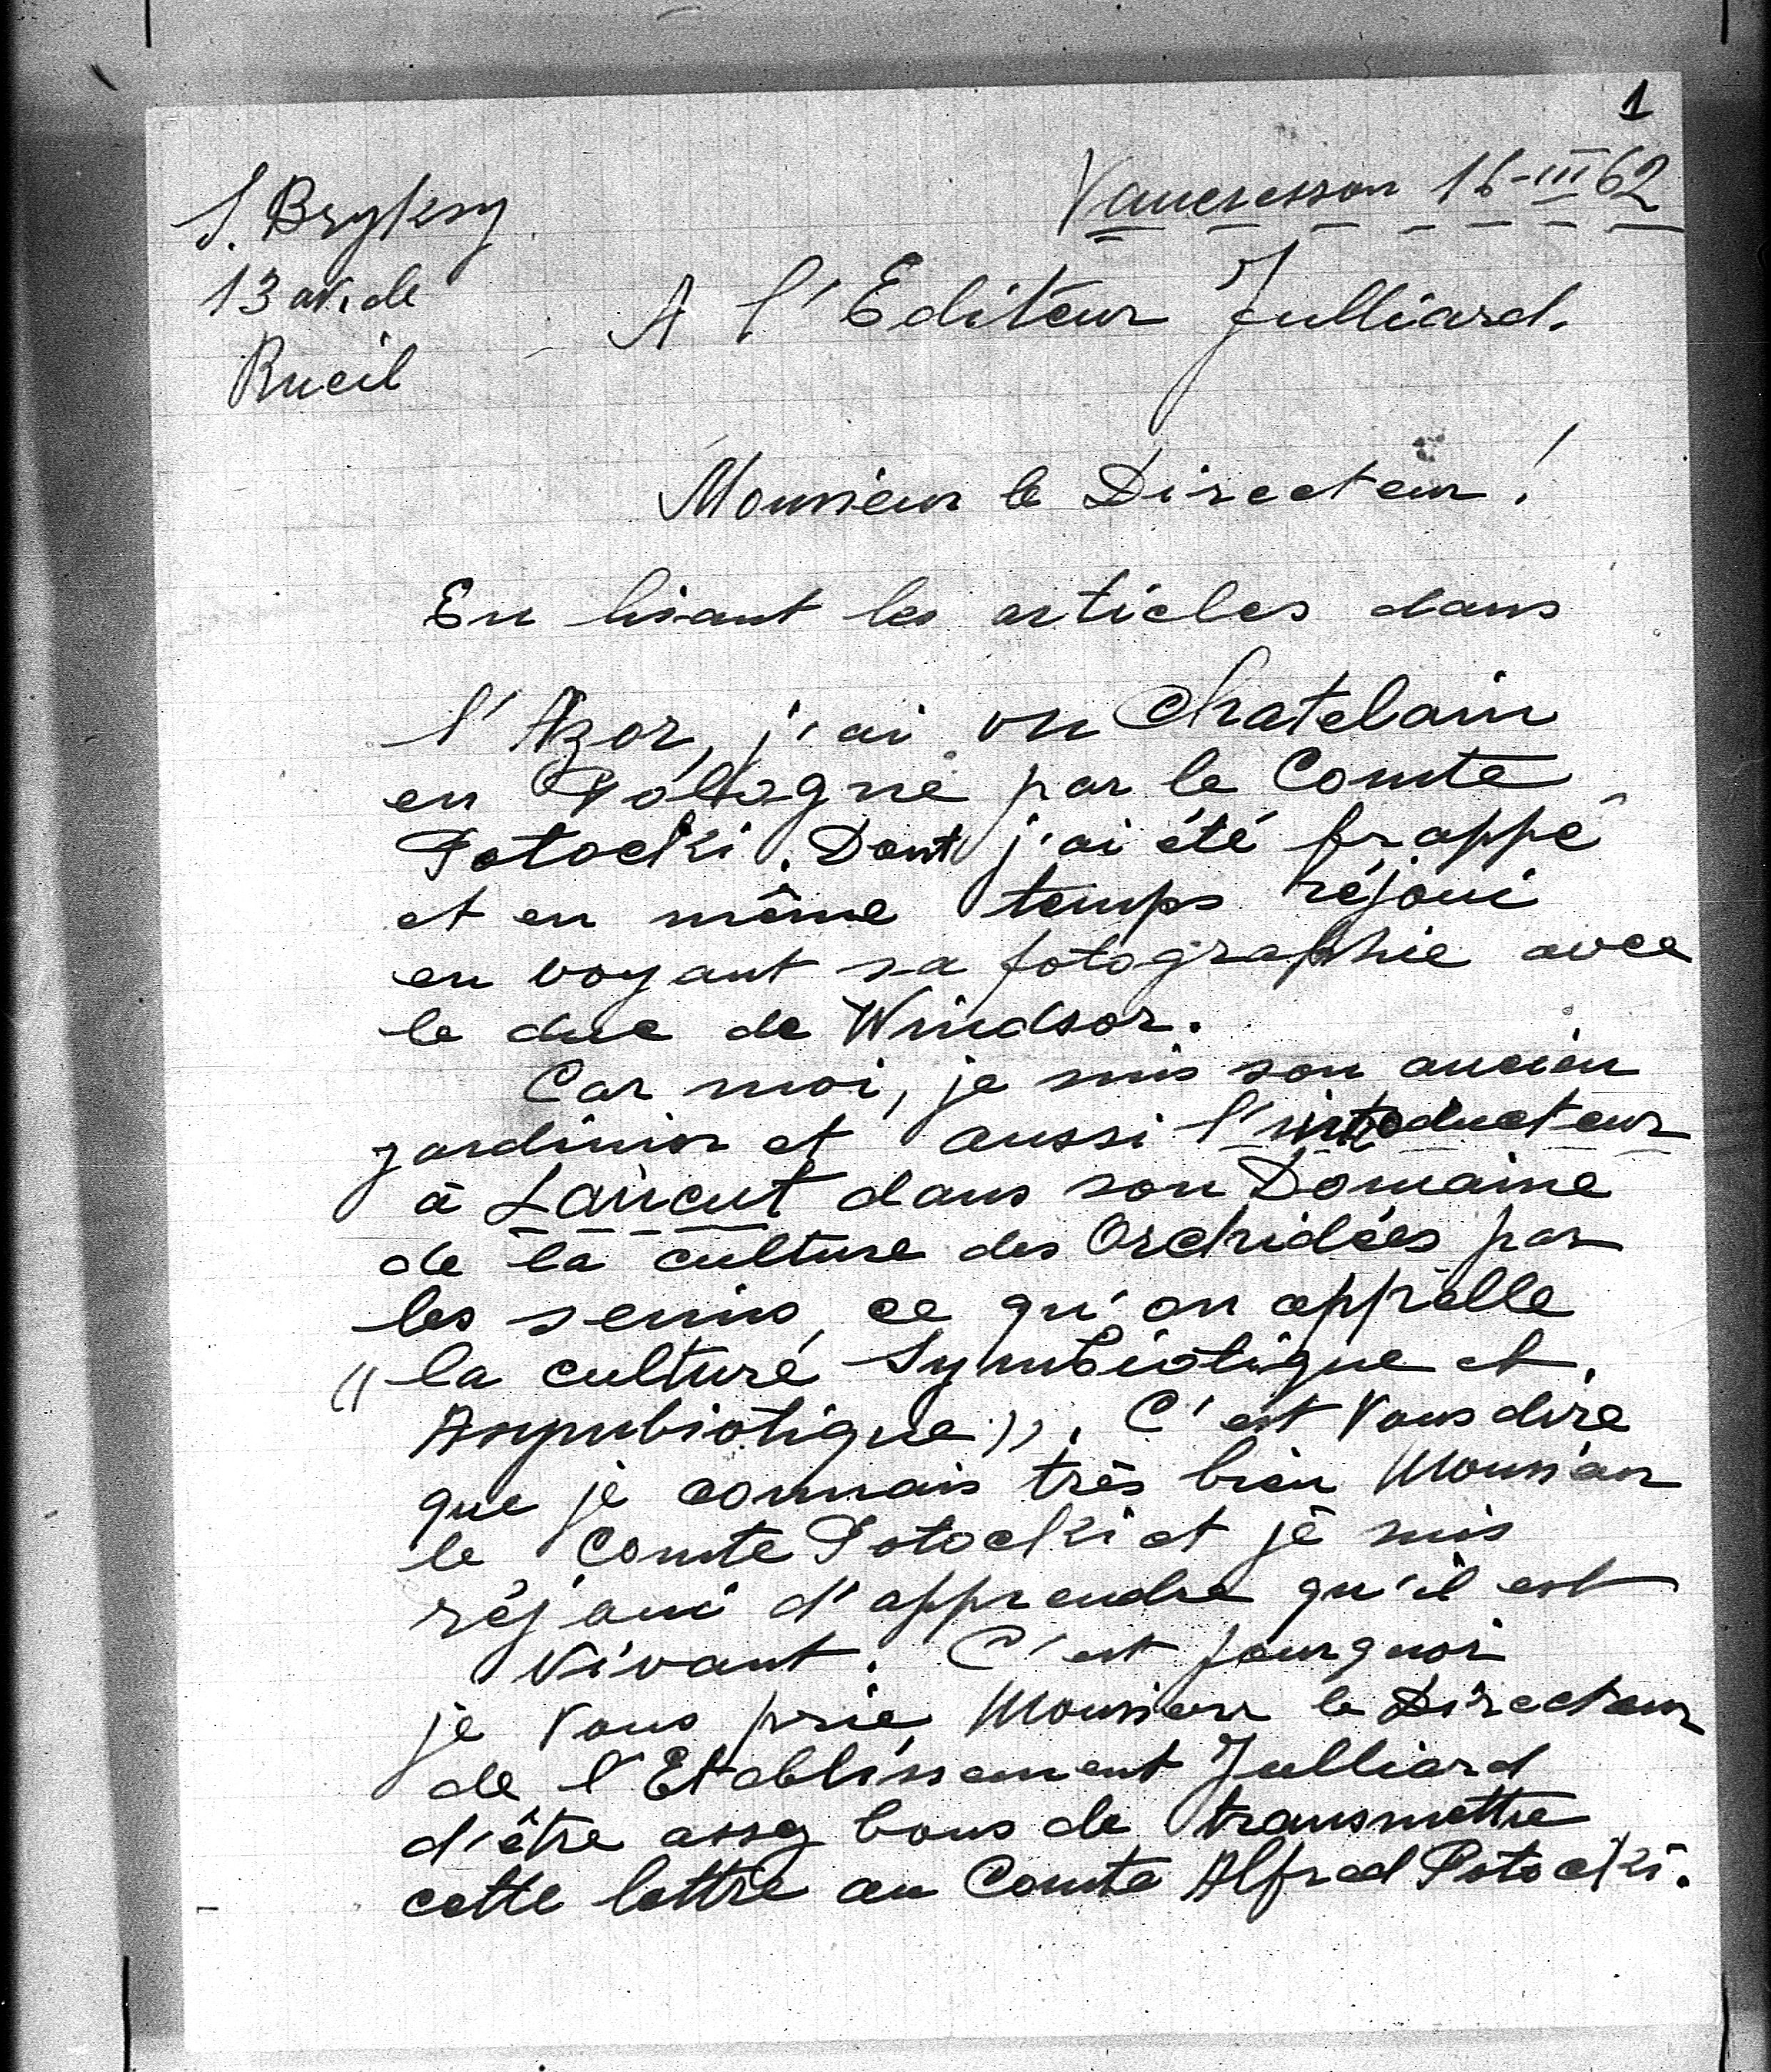 1
Vaucresson 16-III 62
S. Bryksy
13 av. de
Rueil
A l'Editeur Julliard.
Monsieur le Directeur !
En lisant les articles dans
l'Azor, j'ai vu Chatelain
en Pologne par le Comte
Potocki. Dont j'ai été frappé
et en même temps réjoui
en voyant sa fotographie avec
le duc de Windsor.
Car moi, je suis son ancien
jardinier et aussi l'introducteur
à Łańcut dans son Domaine
de la culture des Orchidées par
les semis, ce qu'on appelle
"la culture Symbiotique et
Asymbiotique". C'est Vous dire
que je connais très bien Monsieur
le Comte Potocki et je suis
réjoui d'apprendre qu'il est
Vivant. C'est pourquoi
je Vous prie Monsieur le Directeur
de l'Etablissement Julliard
d'être assez bons de transmettre
cette lettre au Comte Alfred Potocki.